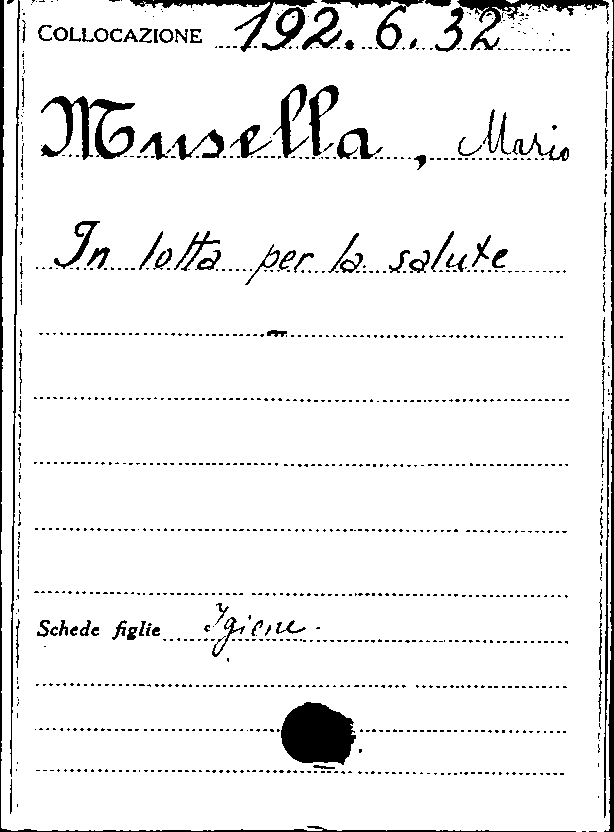 COLLOCAZIONE 192.6.32
Musella, Mario
In lotta per la salute
Schede figlie Igiene.